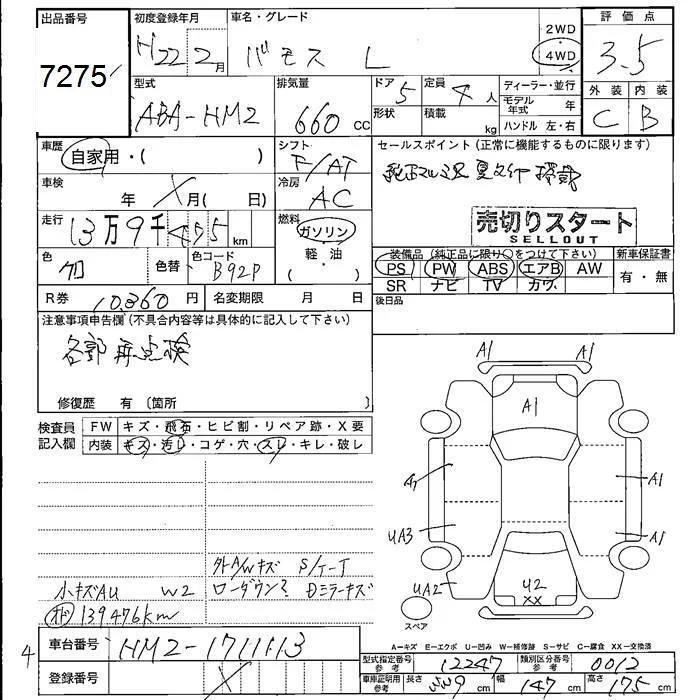 出品番号 初度登録年月 車名・グレード 2WD 評価点
7275 H22 2月 バモス L 4WD 3.5
型式 排気量 ドア 定員 ディーラー・並行 外装 内装
ABA-HM2 660cc 5 4人 モデル年式 年 C B
形状 積載 kg ハンドル 左・右
車歴 自家用・( ) シフト F/AT セールスポイント (正常に機能するものに限ります)
車検 年 月( 日) 冷房 AC
売切りスタート
SELLOUT
走行 13万9千495km 燃料 ガソリン
軽油
( )
装備品 (純正品に限り○をつけて下さい) 新車保証書
PS PW ABS エアB AW 有・無
SR ナビ TV カワ
色 色替 色コード B92P
後日品
R券 10,860円 名変期限 月 日
注意事項申告欄 (不具合内容等は具体的に記入して下さい)
各部再点検
修復歴 有 (箇所
検査員記入欄 FW キズ・飛石・ヒビ割・リペア跡・X要
内装 キズ・汚し・コゲ・穴・スレ・キレ・破レ
A1 A1
A1
A1 A1
UA3 A1
UA2 U2
XX
スペア
外A/Wキズ S/T-T
小キズAU W2 ローダウン? Dミラーキズ
139476km
A-キズ E-エクボ U-凹み W-補修跡 S-サビ C-腐食 XX-交換済
4 車台番号 HM2-1711113 型式指定番号 参考 12247 類別区分番号 参考 0012
登録番号 車庫証明用 参考 長さ cm 幅 147cm 高さ 175cm